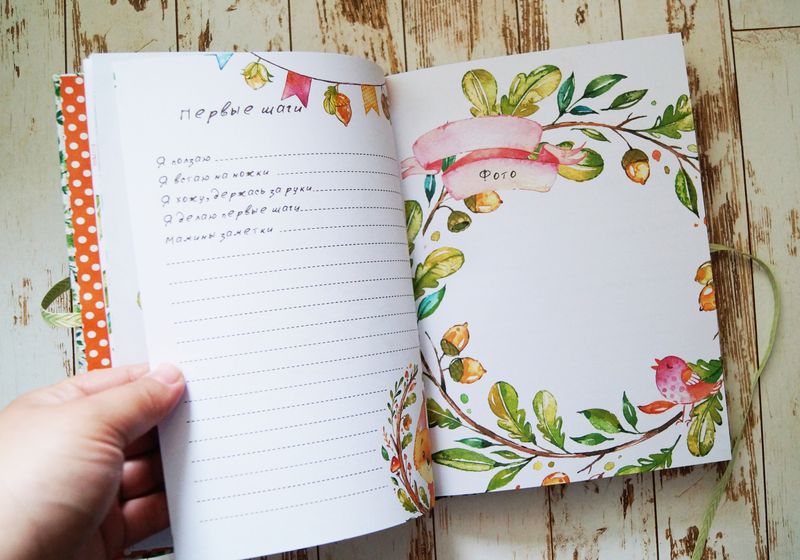 Первые шаги
Я ползаю
Я встаю на ножки
Я хожу, держась за руки
Я делаю первые шаги
Мамины заметки
Фото